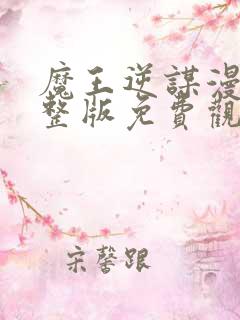 魔王逆謀漫
整版免費觀
宋馨跟